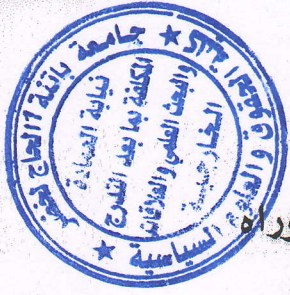 جامعة باتنة 1 الحاج لخضر
والعلوم السياسية
نيابة العمادة
المكلفة بما بعد التدرج
والبحث العلمي والعلاقات
الخارجية
وراه